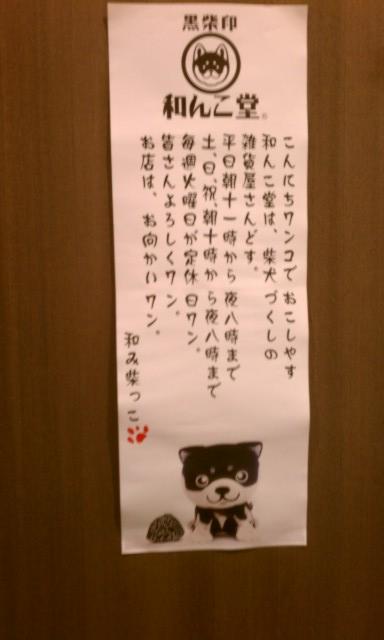 黒柴印
和んこ堂®
こんにちワンコで おこしやす
和んこ堂は、柴犬づくしの
雑貨屋さんどす。
平日朝十一時から夜八時まで
土、日、祝、朝十時から夜八時まで
毎週火曜日が定休日ワン。
皆さんよろしくワン。
お店は、お向かいワン。
和み柴っこ